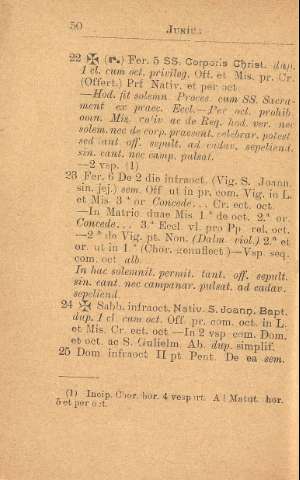 50 JUNIUS
22 ✠ (r.) Fer. 5 SS. Corporis Christ. dup.
1 cl. cum oct. privileg. Off. et Mis. pr. Cr.
(Offert.) Prf Nativ. et per oct
—Hod. fit solemn Proces. cum SS. Sacra-
ment ex praec. Eccl.—Per oct. prohib.
omn. Mis. ca ac de Req. hod. ver. nec
solem. nec de corp. praesent. celebrar. potest
sed tant off. sepult. ad cadav. sepeliend.
sin. cant. nec camp. pulsat.
—2 vsp. (1)
23 Fer. 6 De 2 die infraoct. (Vig. S. Joann.
sin. jej.) sem. Off ut in pr. com. Vig. in L.
et Mis. 3.ª or Concede... Cr. ect. oct.
—In Matric duae Mis. 1.ª de oct. 2.ª or.
Concede... 3.ª Eccl. vl. pro Pp rel. oct.
—2.ª de Vig. pt. Non. (Dalm. viol.) 2.ª et
or. ut in 1.ª (Chor. genuflect )—Vsp. seq.
com. oct alb.
In hac solemnit. permit. tant. off. sepult.
sin. cant. nec campanar. pulsat. ad cadav.
sepeliend.
24 ✠ Sabb. infraoct. Nativ. S. Joann. Bapt.
dup. 1 cl. cum oct. Off. pr. com. oct. in L.
et Mis. Cr. ect. oct —In 2 vsp com. Dom.
et oct. ac S. Gulielm. Ab. dup. simplif.
25 Dom infraoct II pt Pent. De ea sem.
(1) Incip. Chor. hor. 4 vespert. Ad Matut. hor.
5 et per oct.